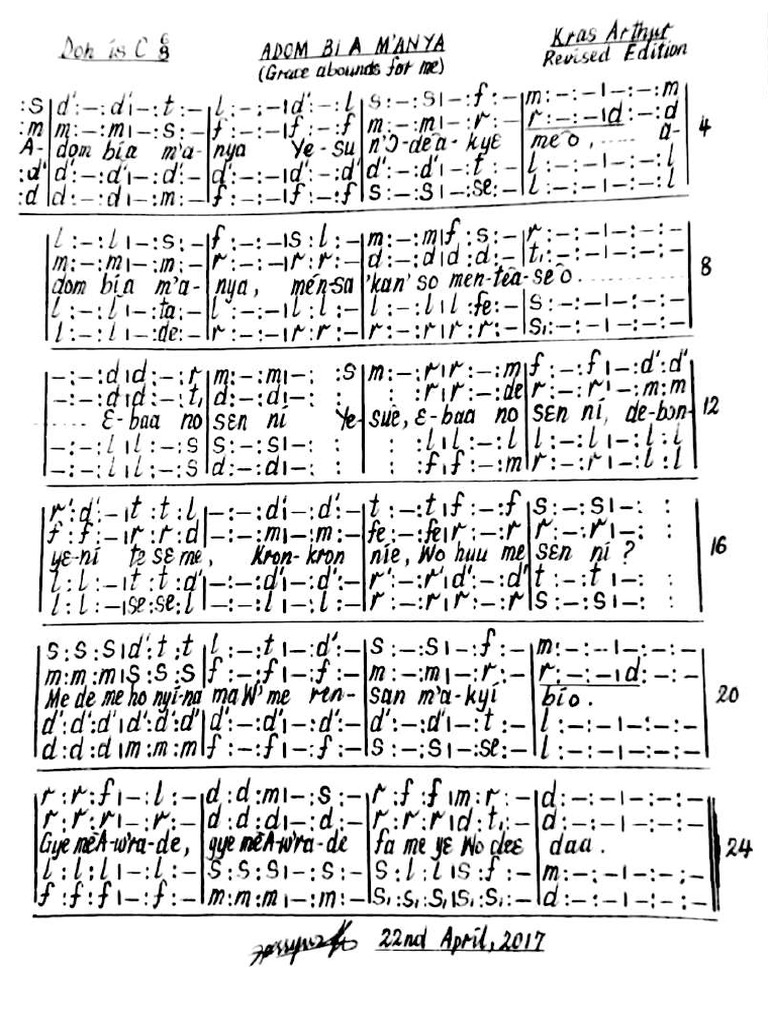 Doh is C 6/8 ADOM BI A M'ANYA Kras Arthur
(Grace abounds for me) Revised Edition
:s|d':–:d'|–:t:–|l:–:–|d':–:l|s:–:s|–:f:–|m:–:–|–:–:m
:m|m:–:m|–:s:–|f:–:–|f:–:f|m:–:m|–:r:–|r:–:–|d:–:d 4
A-dom bi a m'a-nya Ye-su n'Ɔ-de a-kyɛ me o, ...... a-
:d'|d':–:d'|–:d':–|d':–:–|d':–:d'|d':–:d'|–:t:–|l:–:–|–:–:l
:d|d:–:d|–:m:–|f:–:–|f:–:f|s:–:s|–:se:–|l:–:–|–:–:l
l:–:l|–:s:–|f:–:–|s:l:–|m:–:m|f:s:–|r:–:–|–:–:–
m:–:m|–:m:–|r:–:–|r:r:–|d:–:d|d:d:–|t,:–:–|–:–:– 8
dom bi a m'a-nya, mén-sa 'kan' so men-tea-se o ..............
l:–:l|–:ta:–|l:–:–|l:l:–|l:–:l|l:fe:–|s:–:–|–:–:–
l:–:l|–:de:–|r:–:–|r:r:–|r:–:r|r:r:–|s,:–:–|–:–:–
–:–:d|d:–:r|m:–:m|–: :s|m:–:r|r:–:m|f:–:f|–:d':d'
–:–:d|d:–:t,|d:–:d|–: : | : :r|r:–:de|r:–:r|–:m:m
....... Ɛ-baa no sɛn ni Ye-su e, ɛ-baa no sɛn ni, de-bɔn- 12
–:–:l|l:–:s|s:–:s|–: : | : :l|l:–:l|l:–:l|–:l:l
–:–:l|l:–:s|d:–:d|–: : | : :f|f:–:m|r:–:r|–:l:l
r':d':–|t:t:l|–:–:d|–:d':–|t:–:t|f:–:f|s:–:s|–: :
f:f:–|r:r:d|–:–:m|–:m:–|fe:–:fe|r:–:r|r:–:r|–: :
yɛ-ni te sɛ me, Kron-kron nie, Wo huu me sɛn ni? 16
l:l:–|t:t:d'|–:–:d'|–:d':–|r':–:r'|d':–:d'|t:–:t|–: :
l:l:–|se:se:l|–:–:l|–:l:–|r:–:r|r:–:r|s:–:s|–: :
s:s:s|d':t:t|l:–:t|–:d':–|s:–:s|–:f:–|m:–:–|–:–:–
m:m:m|s:s:s|f:–:f|–:f:–|m:–:m|–:r:–|r:–:–|d:–:–
Me de me ho nyi-na ma W'me ren-san m'a-kyi bio. 20
d':d':d'|d':d':d'|d':–:d'|–:d':–|d':–:d'|–:t:–|l:–:–|–:–:–
d:d:d|m:m:m|f:–:f|–:f:–|s:–:s|–:se:–|l:–:–|–:–:–
r:r:f|–:l:–|d:d:m|–:s:–|r:f:f|m:r:–|d:–:–|–:–:–
r:r:r|–:r:–|d:d:d|–:d:–|r:r:r|d:t,:–|d:–:–|–:–:–
Gye me A-w'ra-de, gye me A-w'ra-de fa me yɛ Wo deɛ daa. 24
l:l:l|–:l:–|s:s:s|–:s:–|s:l:l|s:f:–|m:–:–|–:–:–
f:f:f|–:f:–|m:m:m|–:m:–|s,:s,:s,|s,:s,:–|d:–:–|–:–:–
22nd April, 2017